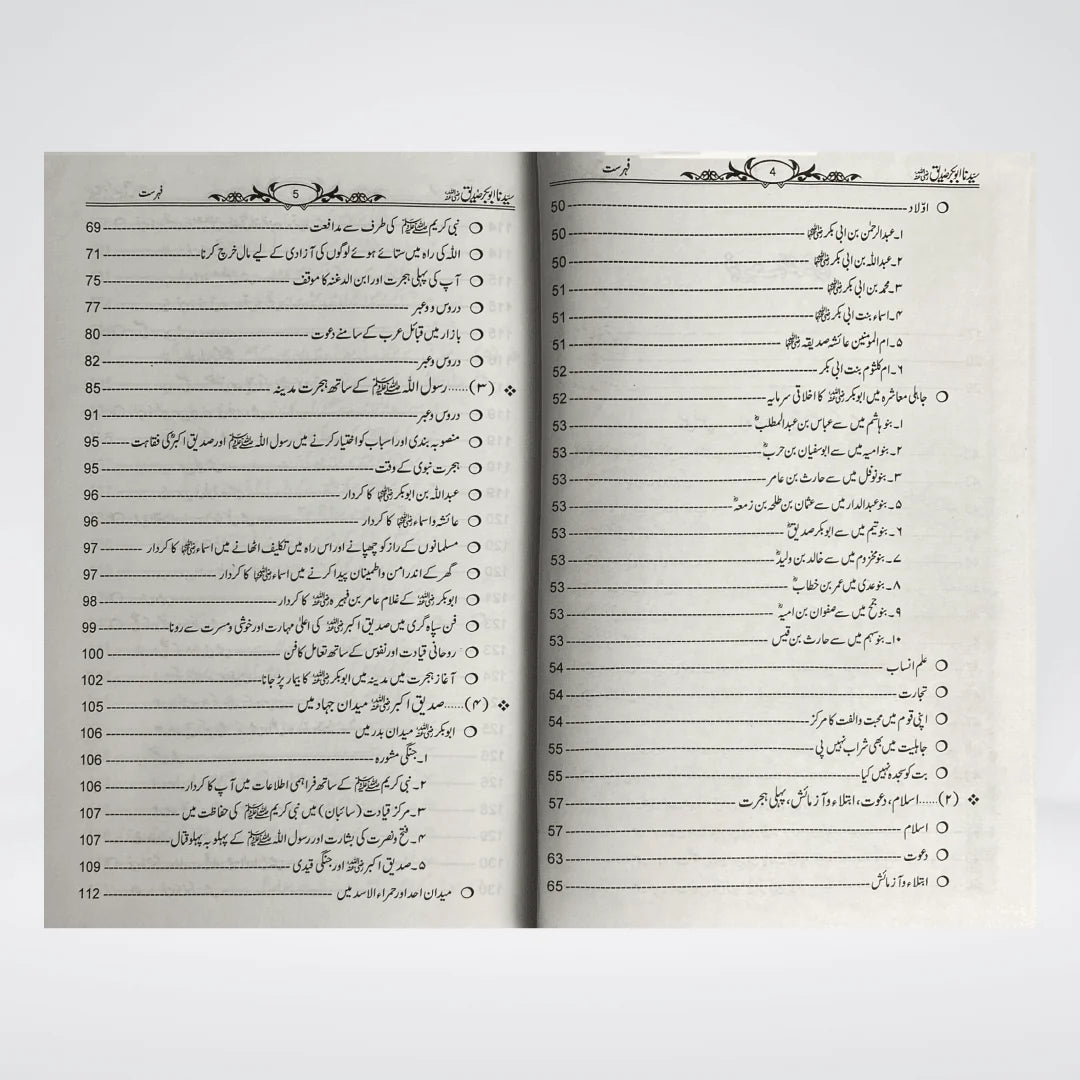 سیّدنا ابوبکر صدیق رضی اللہ عنہ 4 فہرست
○ اوّلاد 50
۱۔عبدالرحمٰن بن ابی بکر رضی اللہ عنہما 50
۲۔عبداللہ بن ابی بکر رضی اللہ عنہما 50
۳۔محمد بن ابی بکر رضی اللہ عنہما 51
۴۔اسماء بنت ابی بکر رضی اللہ عنہما 51
۵۔ام المؤمنین عائشہ صدیقہ رضی اللہ عنہا 51
۶۔ام کلثوم بنت ابی بکر 52
○ جاہلی معاشرہ میں ابوبکر رضی اللہ عنہ کا اخلاقی سرمایہ 52
۱۔بنو ہاشم میں سے عباس بن عبدالمطلبؓ 53
۲۔بنو امیہ میں سے ابوسفیان بن حربؓ 53
۳۔بنو نوفل میں سے حارث بن عامر 53
۵۔بنو عبدالدار میں سے عثمان بن طلحہ بن زمعہؓ 53
۶۔بنو تیم میں سے ابوبکر صدیقؓ 53
۷۔بنو مخزوم میں سے خالد بن ولیدؓ 53
۸۔بنو عدی میں عمر بن خطابؓ 53
۹۔بنو جمح میں سے صفوان بن امیہؓ 53
۱۰۔بنو سہم میں سے حارث بن قیس 53
○ علم انساب 54
○ تجارت 54
○ اپنی قوم میں محبت والفت کا مرکز 54
○ جاہلیت میں بھی شراب نہیں پی 55
○ بت کو سجدہ نہیں کیا 55
❖ (۲)......اسلام، دعوت، ابتلاء و آزمائش، پہلی ہجرت 57
○ اسلام 57
○ دعوت 63
○ ابتلاء و آزمائش 65
سیّدنا ابوبکر صدیق رضی اللہ عنہ 5 فہرست
○ نبی کریم ﷺ کی طرف سے مدافعت 69
○ اللہ کی راہ میں ستائے ہوئے لوگوں کی آزادی کے لیے مال خرچ کرنا 71
○ آپ کی پہلی ہجرت اور ابن الدغنہ کا موقف 75
○ دروس و عبر 77
○ بازار میں قبائل عرب کے سامنے دعوت 80
○ دروس و عبر 82
❖ (۳)......رسول اللہ ﷺ کے ساتھ ہجرت مدینہ 85
○ دروس و عبر 91
○ منصوبہ بندی اور اسباب کو اختیار کرنے میں رسول اللہ ﷺ اور صدیق اکبرؓ کی فقاہت 95
○ ہجرت نبوی کے وقت 95
○ عبداللہ بن ابوبکر رضی اللہ عنہما کا کردار 96
○ عائشہ و اسماء رضی اللہ عنہما کا کردار 96
○ مسلمانوں کے راز کو چھپانے اور اس راہ میں تکلیف اٹھانے میں اسماء رضی اللہ عنہا کا کردار 97
○ گھر کے اندر امن و اطمینان پیدا کرنے میں اسماء رضی اللہ عنہا کا کردار 97
○ ابوبکر رضی اللہ عنہ کے غلام عامر بن فہیرہ رضی اللہ عنہ کا کردار 98
○ فن سپاہ گری میں صدیق اکبر رضی اللہ عنہ کی اعلیٰ مہارت اور خوشی و مسرت سے رونا 99
○ روحانی قیادت اور نفوس کے ساتھ تعامل کا فن 100
○ آغاز ہجرت میں مدینہ میں ابوبکر رضی اللہ عنہ کا بیمار پڑ جانا 102
❖ (۴)......صدیق اکبر رضی اللہ عنہ میدان جہاد میں 105
○ ابوبکر رضی اللہ عنہ میدان بدر میں 106
۱۔جنگی مشورہ 106
۲۔نبی کریم ﷺ کے ساتھ فراہمی اطلاعات میں آپ کا کردار 106
۳۔مرکز قیادت (سائبان) میں نبی کریم ﷺ کی حفاظت میں 107
۴۔فتح و نصرت کی بشارت اور رسول اللہ ﷺ کے پہلو بہ پہلو قتال 107
۵۔صدیق اکبر رضی اللہ عنہ اور جنگی قیدی 109
○ میدان احد اور حمراء الاسد میں 112